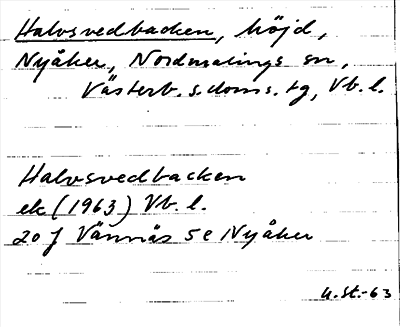 Halvsvedbacken, höjd,
Nyåker, Nordmalings sn,
Västerb. s.doms. tg, Vb. l.
Halvsvedbacken
ek (1963) Vb. l.
20 J Vännäs 5 e Nyåker
U.St.-63